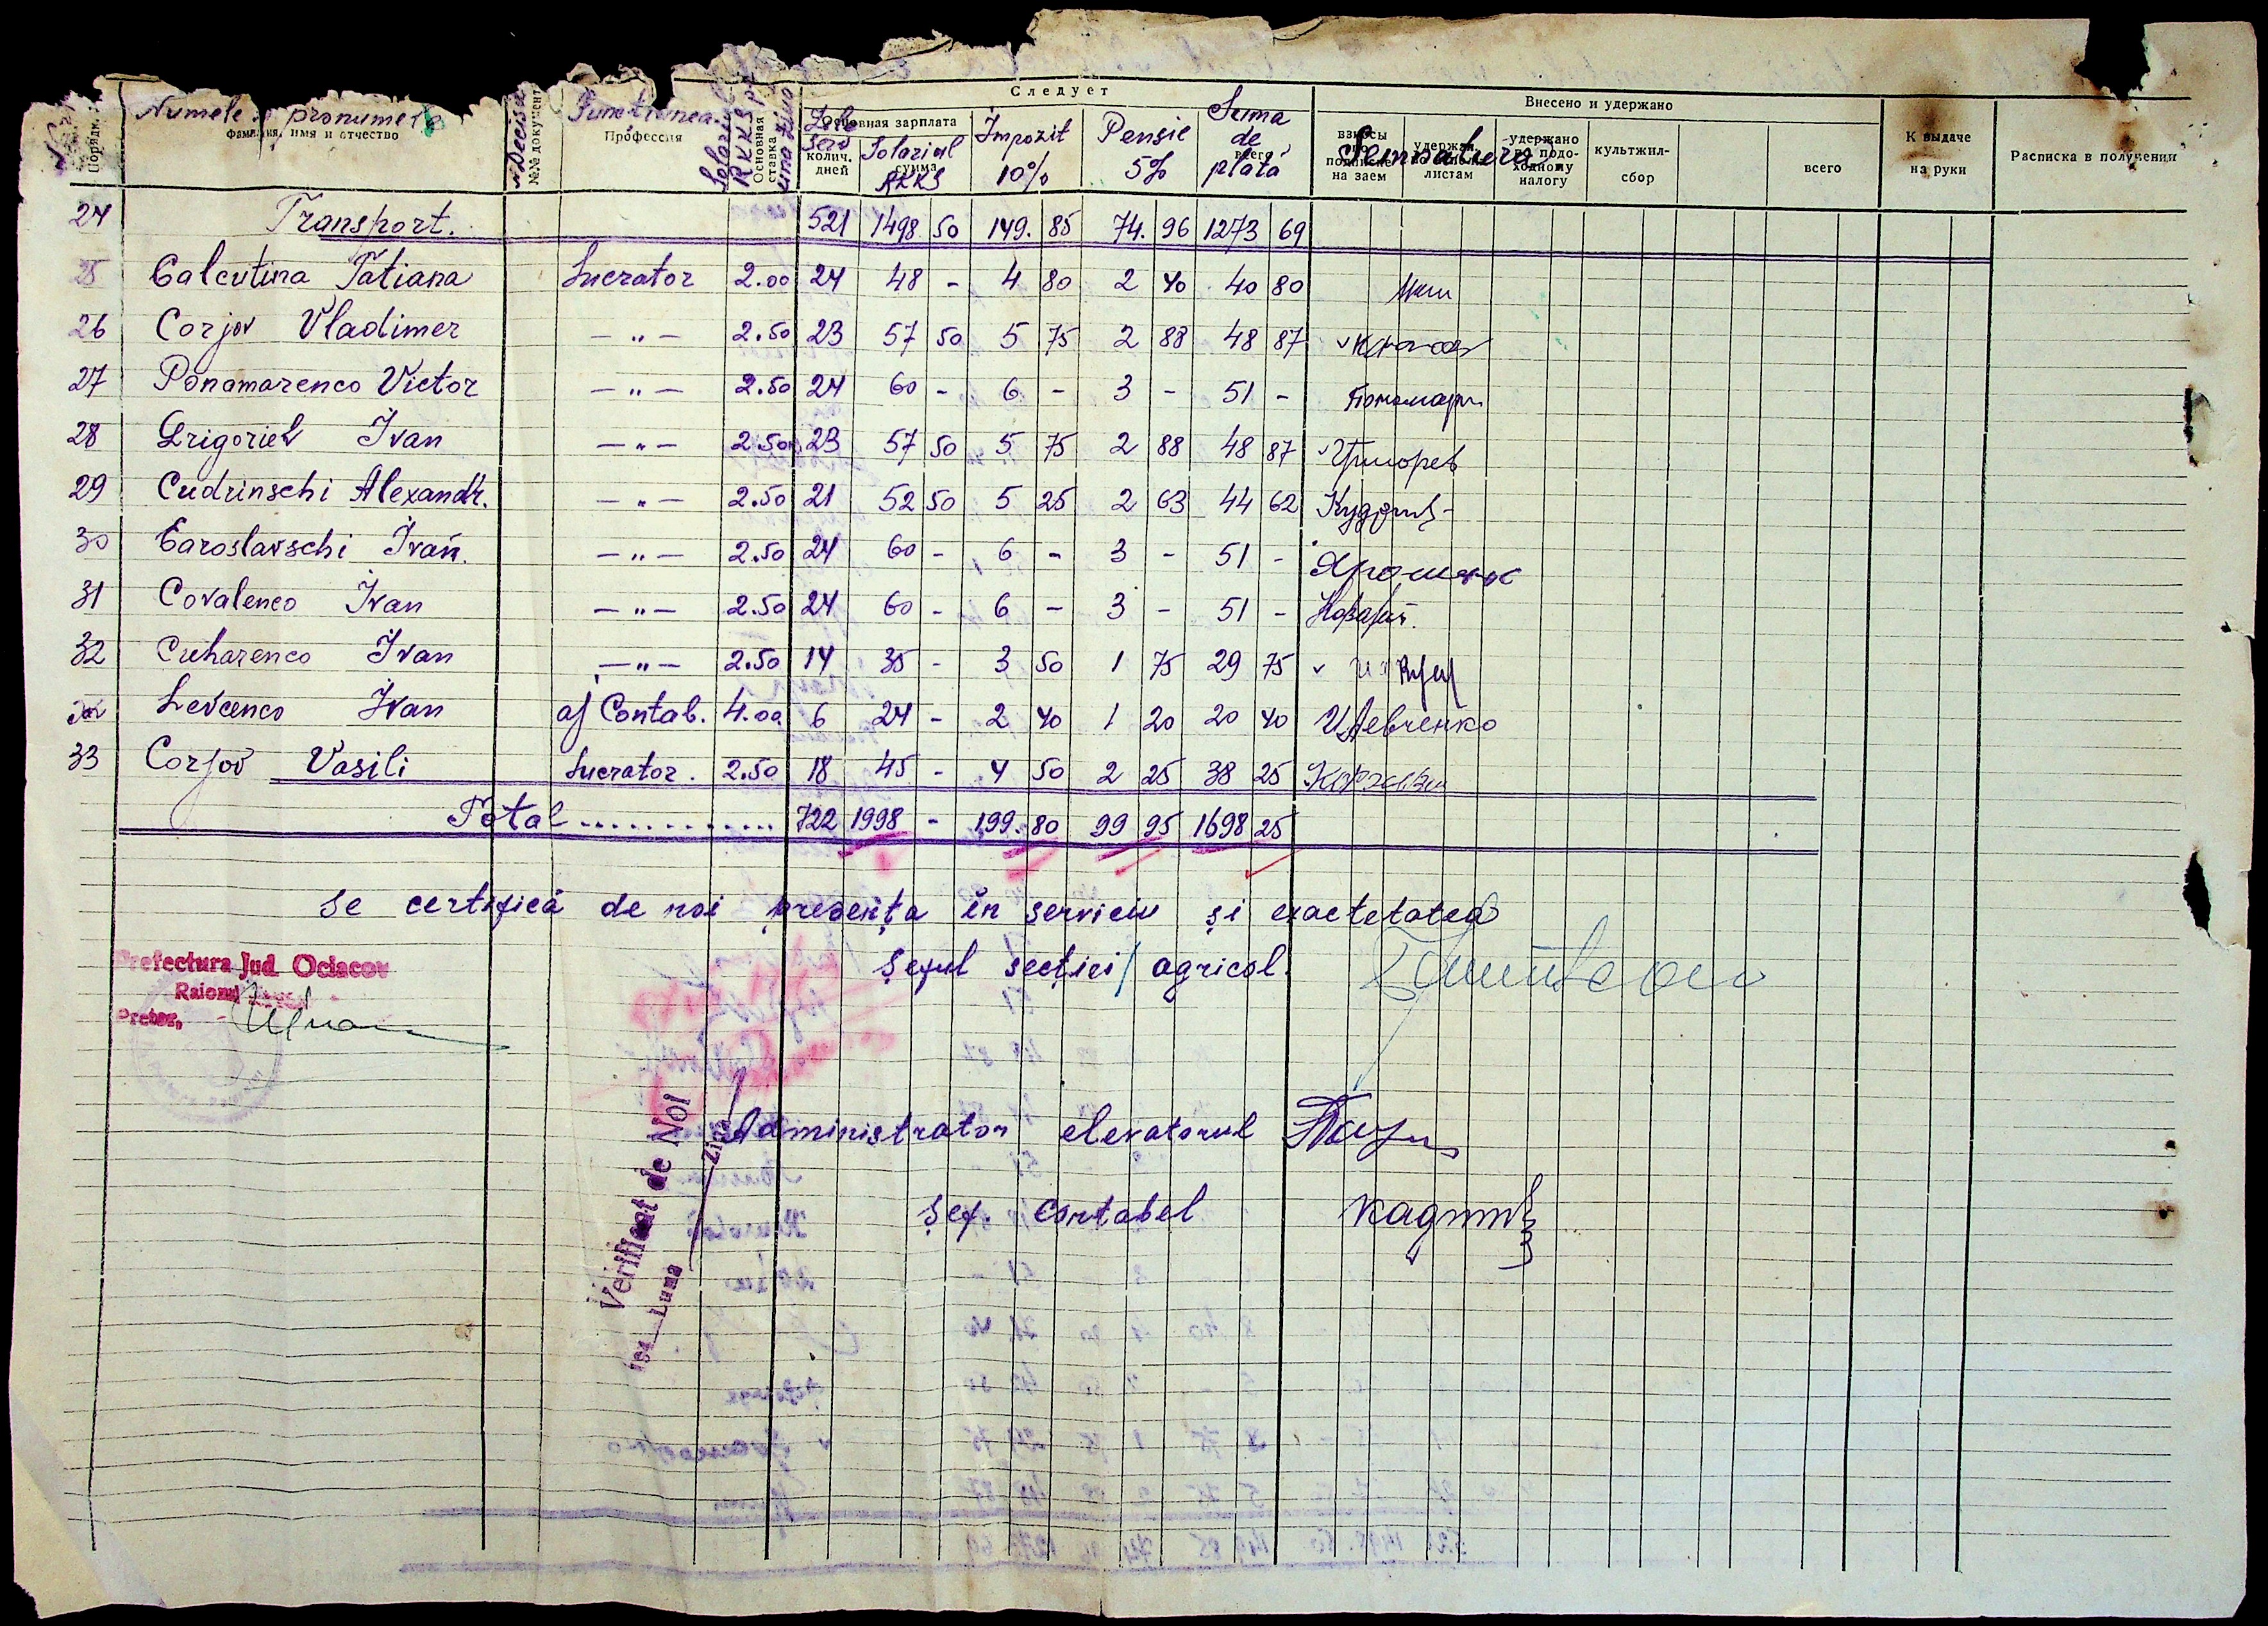 Следует
Внесено и удержано
Numele pronumele
фамилия, имя и отчество
№ Decisia
№№ документ
Functiunea
Профессия
Основная ставка
Zile
Основная зарплата
serv
колич. дней
Salariul
сумма
RKKS
Impozit
10%
Pensie
5%
Suma
de
всего
plată
Semnatura
взносы по подписке на заем
удержан. листам
удержано по подоходному налогу
культжил-
сбор
всего
К выдаче
на руки
Расписка в получении
24 Transport. 521 1498 50 149. 85 74. 96 1273 69
25 Calcutina Tatiana Lucrator 2.00 24 48 - 4 80 2 40 40 80
26 Corjov Vladimer - „ - 2.50 23 57 50 5 75 2 88 48 87
27 Ponamarenco Victor - „ - 2.50 24 60 - 6 - 3 - 51 - Пономар
28 Grigoriev Ivan - „ - 2.50 23 57 50 5 75 2 88 48 87 Григорев
29 Cudrinschi Alexandr. - „ - 2.50 21 52 50 5 25 2 63 44 62
30 Earoslavschi Ivan. - „ - 2.50 24 60 - 6 - 3 - 51 -
31 Covalenco Ivan - „ - 2.50 24 60 - 6 - 3 - 51 -
32 Cuharenco Ivan - „ - 2.50 14 35 - 3 50 1 75 29 75
Levcenco Ivan aj Contab. 4.00 6 24 - 2 40 1 20 20 40 И Левченко
33 Corjov Vasili Lucrator. 2.50 18 45 - 4 50 2 25 38 25
Total ............. 722 1998 - 199. 80 99 95 1698 25
Se certifică de noi prezența în serviciu și exactetatea
Șeful secției agricol.
Prefectura Jud. Oclacov
Raionul
Pretor,
Administrator elevatorul
Șef. contabel
Verificat de Noi
Luna Ziua